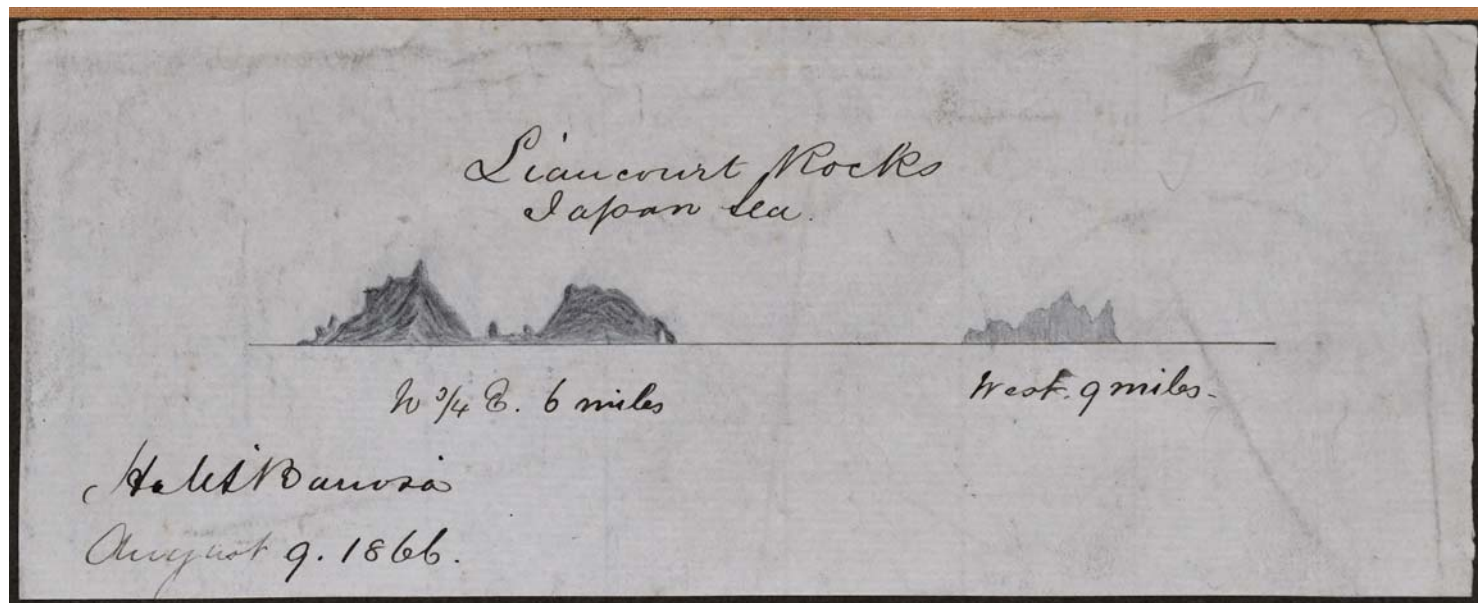 Liancourt Rocks
Japan Sea.
N ¾ E. 6 miles
West. 9 miles.
H.M.S Barrosa
August 9. 1866.